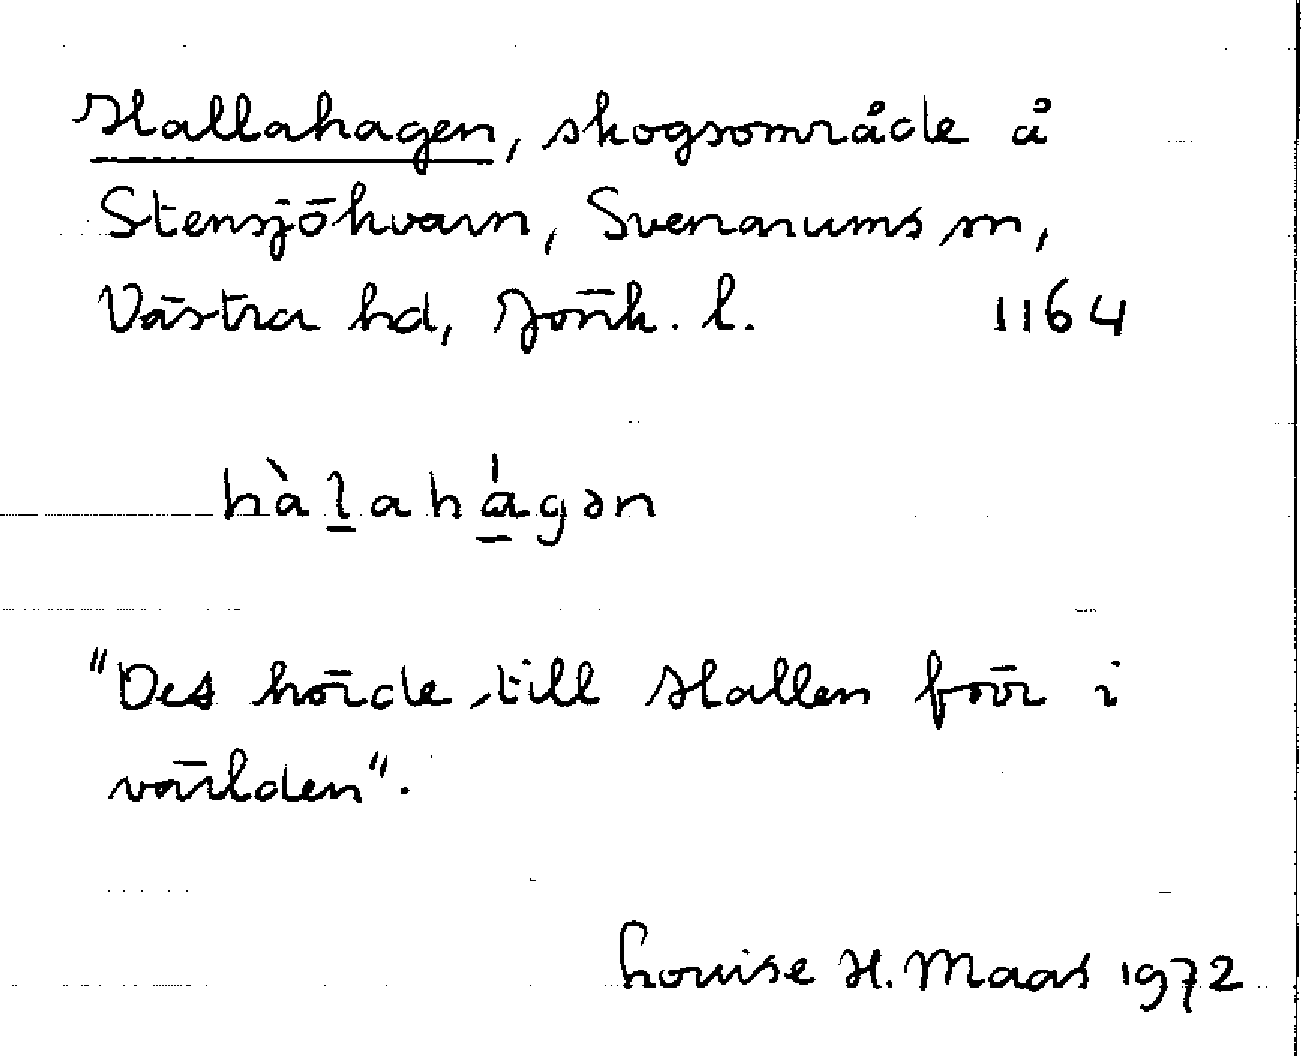 Hallahagen, skogsområde å
Stensjökvarn, Svenarums sn,
Västra hd, Jönk. l. 1164
hàl̲ahá̲gən
"Det hörde till Hallen förr i
världen".
Louise H. Maas 1972